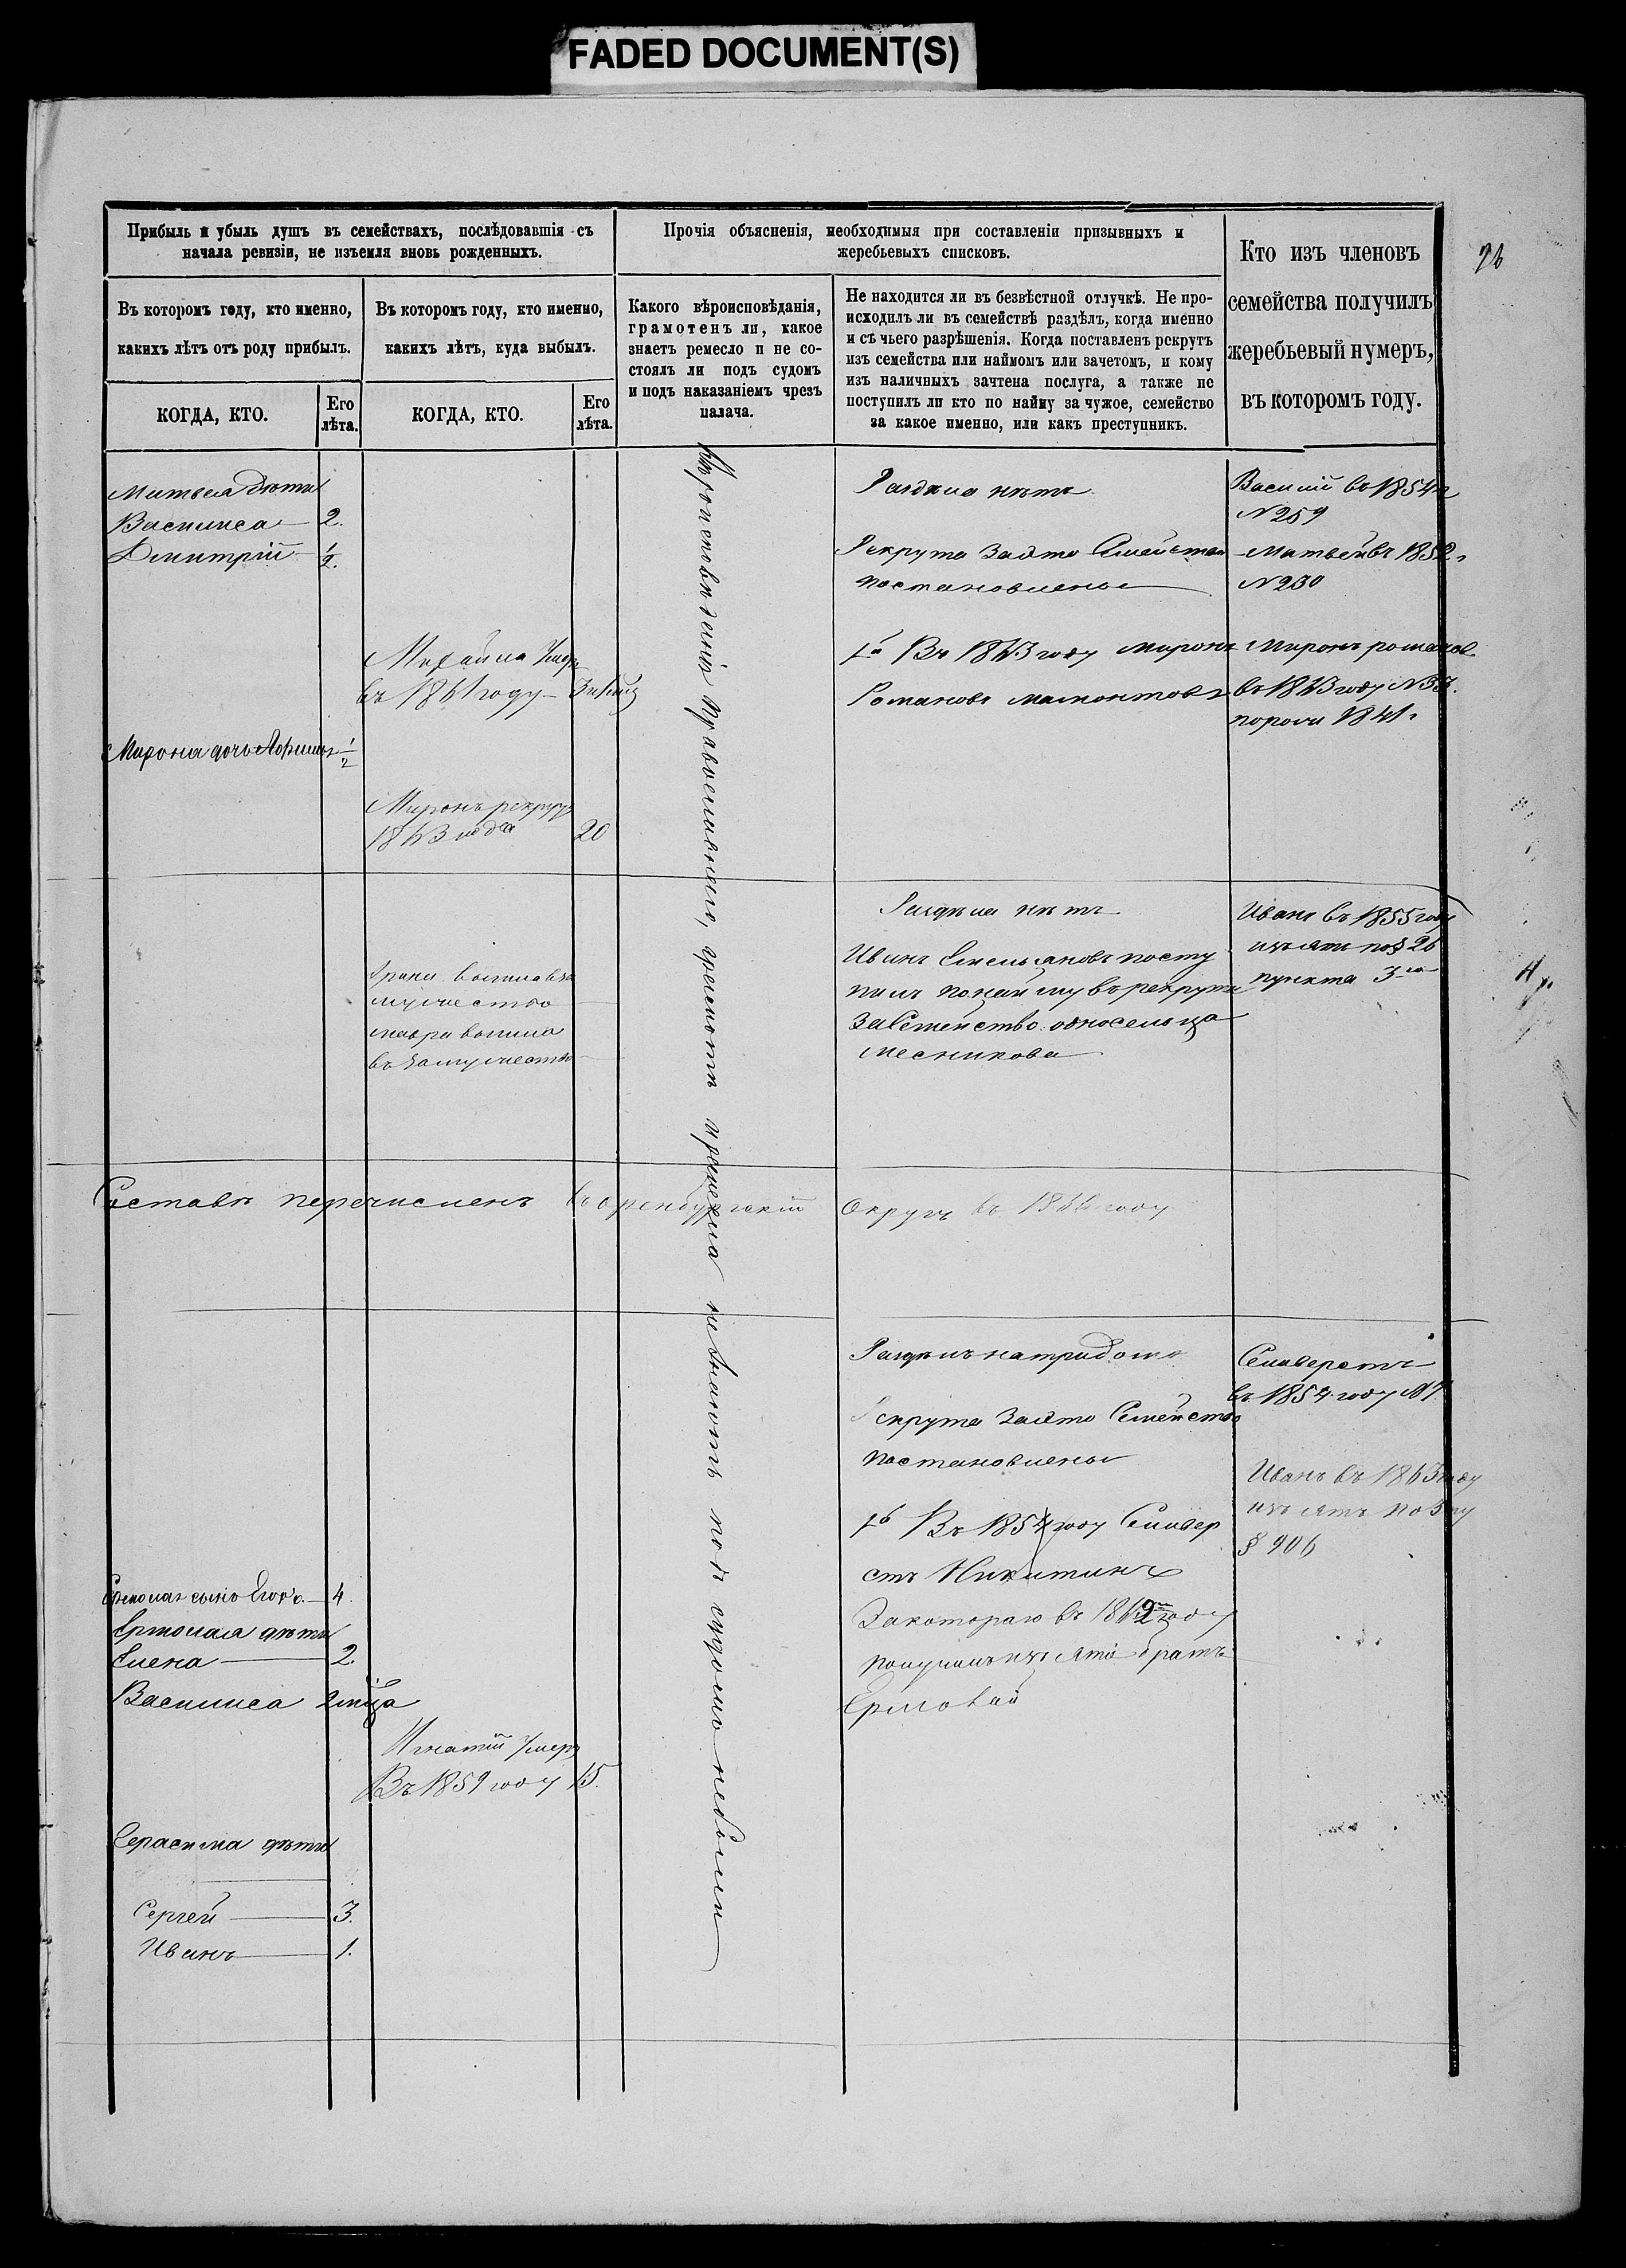 FADED DOCUMENT(S)
Прибыль и убыль душъ въ семействахъ, послѣдовавшія съ
начала ревизіи, не изъемля вновь рожденныхъ.
Прочія объясненія, необходимыя при составленіи призывныхъ и
жеребьевыхъ списковъ.
Кто изъ членовъ
семейства получилъ
жеребьевый нумеръ,
въ которомъ году.
Въ которомъ году, кто именно,
какихъ лѣтъ отъ роду прибылъ.
Въ которомъ году, кто именно,
какихъ лѣтъ, куда выбылъ.
Какого вѣроисповѣданія,
грамотенъ ли, какое
знаетъ ремесло и не со-
стоялъ ли подъ судомъ
и подъ наказаніемъ чрезъ
палача.
Не находится ли въ безвѣстной отлучкѣ. Не про-
исходилъ ли въ семействѣ раздѣлъ, когда именно
и съ чьего разрѣшенія. Когда поставленъ рекрутъ
изъ семейства или наймомъ или зачетомъ, и кому
изъ наличныхъ зачтена послуга, а также не
поступилъ ли кто по найму за чужое, семейство
за какое именно, или какъ преступникъ.
КОГДА, КТО.
Его
лѣта.
КОГДА, КТО.
Его
лѣта.
Матвея дѣти
Василиса 2.
Дмитрій ½.
Раздѣла нѣтъ
Василій въ 1854 г
№ 259
Рекрута за это Семейство
постановлены
Матвей въ 1852 г
№ 230
Михайла умеръ
въ 1861 году
1й Въ 1863 году Миронъ
Романовъ Мамонтовъ
Миронъ Романов
въ 1863 году № 33.
Мирона дочь ½
Миронъ рекрут
1863 года 20
Вѣроисповѣданія православнаго, грамотѣ и ремесла не знаютъ подъ судомъ небыли
Раздѣла нѣтъ
Иванъ Емельяновъ посту
пилъ по найму въ рекруты
за Семейство односельца
Месникова
Иванъ въ 1855 году
изъятъ по § 26
пункта 3го
вышла въ за
мужество
Мавра вышла
въ замужество
перечисленъ въ Оренбургскій Округъ въ году
Раздѣлъ на три дома
Рекрута за это Семейство
постановлены
1й Въ 1854 году Селивер
стъ Никитинъ
За котораго въ 1862 году
получилъ изъятіе братъ
Ермолай
Селиверстъ
въ 1854 году № 7
Иванъ въ 1863 году
изъятъ по
§ 906
сынъ Егоръ 4.
Ермолая дѣти
Елена 2.
Василиса 2 мѣца
Игнатій умеръ
Въ 1859 году 15.
Герасима дѣти
Сергей 3.
Иванъ 1.